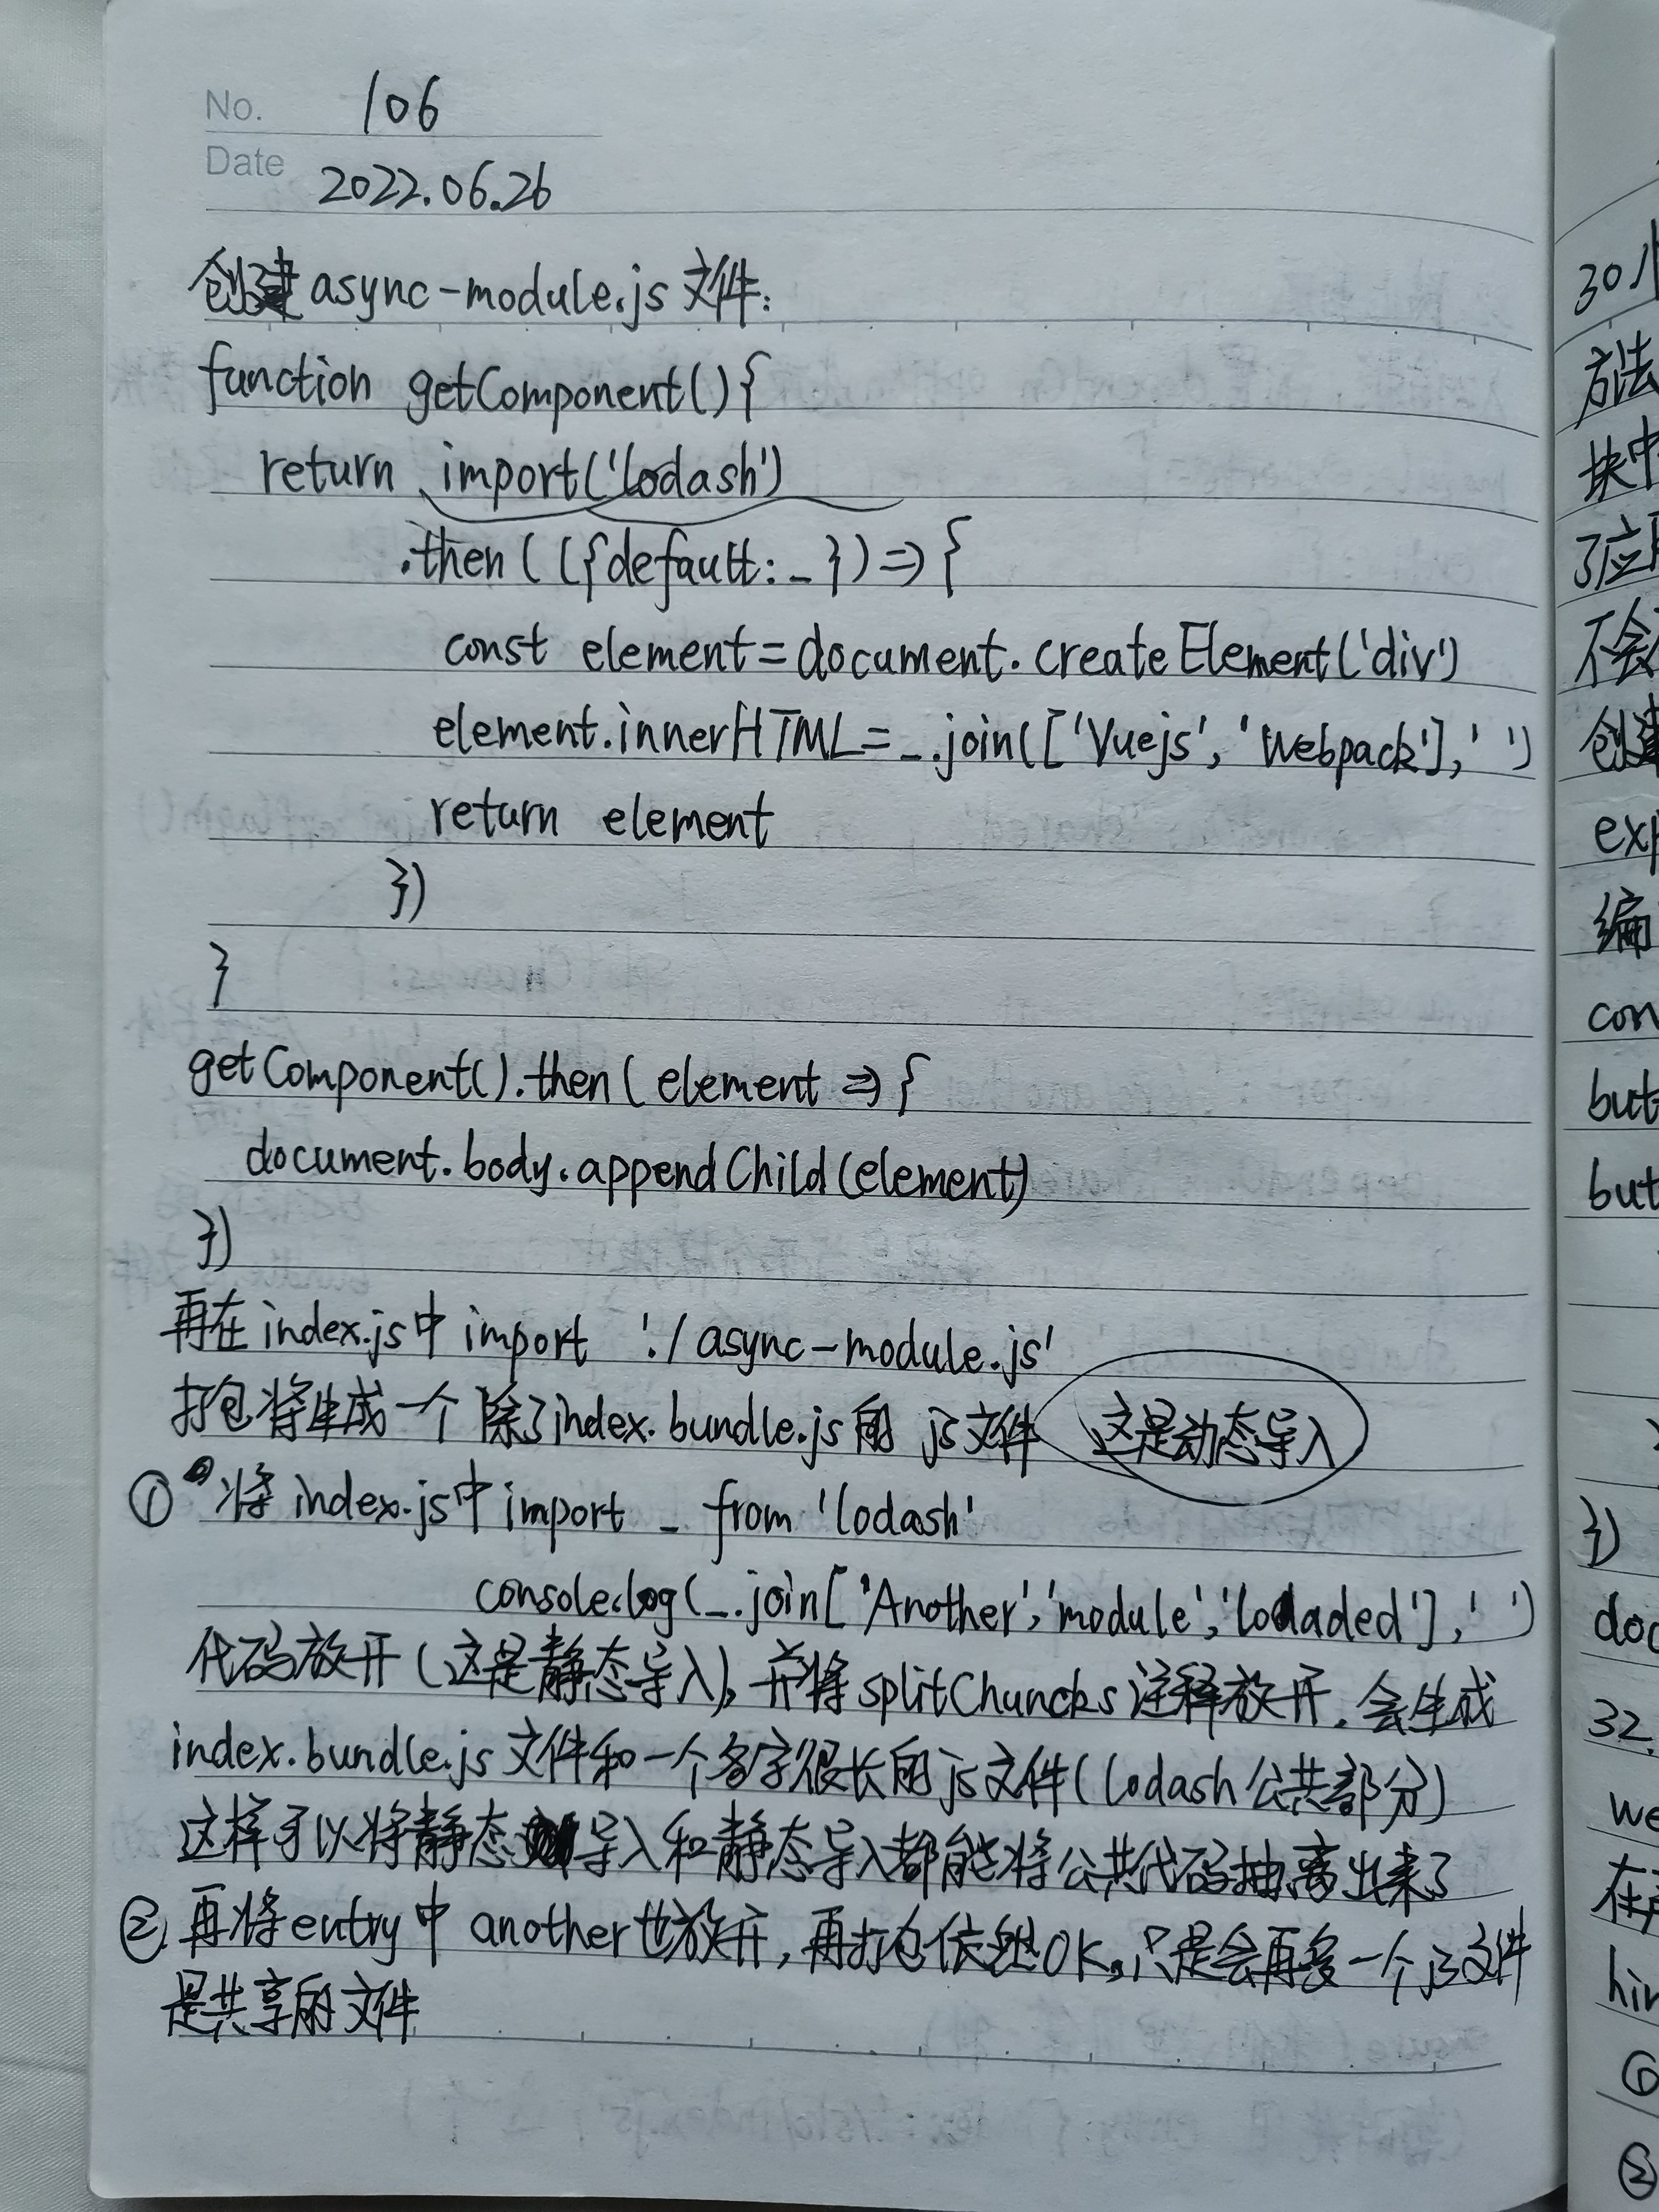 No. 106
Date 2022.06.26
创建async-module.js文件:
function getComponent(){
return import('lodash')
.then(({default:_})=>{
const element=document.createElement('div')
element.innerHTML=_.join(['Vuejs','Webpack'],' ')
return element
})
}
getComponent().then(element=>{
document.body.appendChild(element)
})
再在index.js中import './async-module.js'
打包将生成一个除了index.bundle.js的js文件 这是动态导入
① 将index.js中import _ from 'lodash'
console.log(_.join['Another','module','loadaded'],' ')
代码放开(这是静态导入),并将splitChuncks注释放开,会生成
index.bundle.js文件和一个名字很长的js文件(lodash公共部分)
这样可以将静态导入和静态导入都能将公共代码抽离出来了
②.再将entry中another也放开,再打包依然OK,只是会再多一个js文件
是共享的文件
30小
方法
块中
了应用
不会
创建
exp
编
con
but
but
})
doc
32.
we
在
hin
①
②